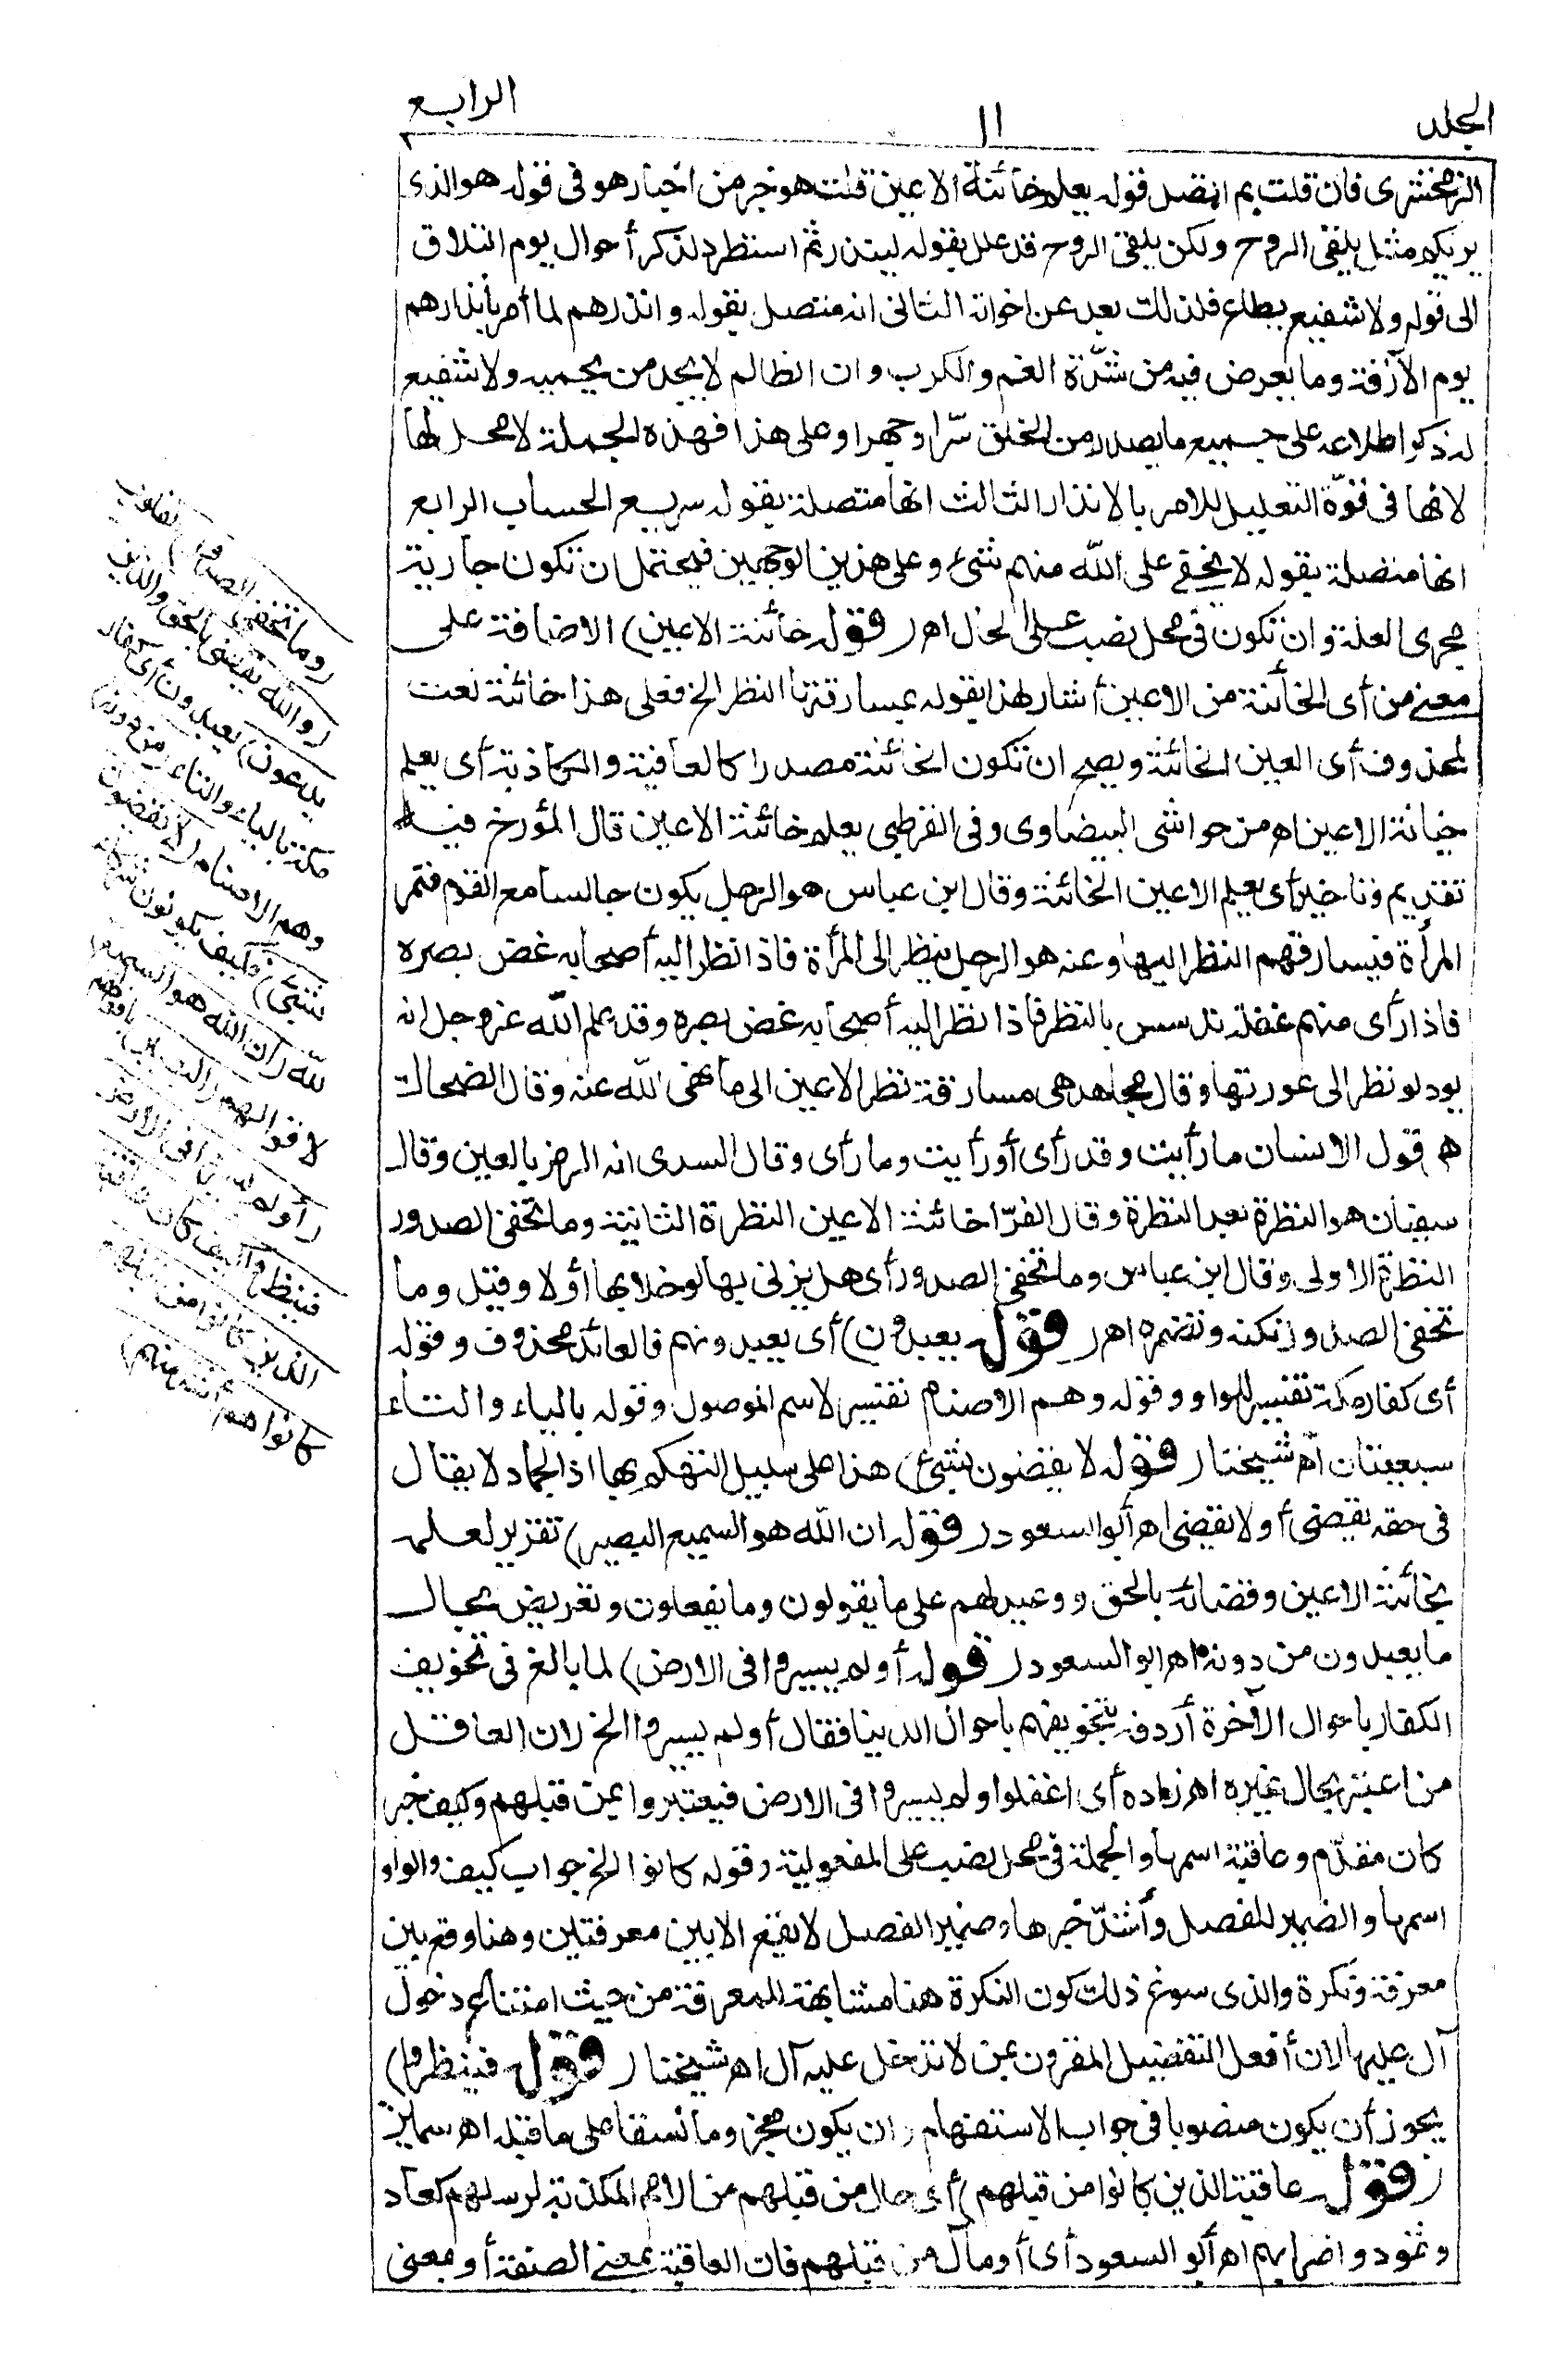 المجلد
١١
الرابع
الزمخشرى فان قلت بم اتصل قوله يعلم خائنة الاعين قلت هو خبر من اخبار هو فى قوله هو الذى
يريكم مثل يلقى الروح ولكن يلقى الروح قد علل بقوله لينذر ثم استطرد لذكر أحوال يوم التلاق
الى قوله ولا شفيع يطاع فلذلك بعد عن اخواته الثانى انه متصل بقوله وانذرهم لما أمر بأنذارهم
يوم الآزفة وما يعرض فيه من شدّة الغم والكرب وان الظالم لا يجد من يحميه ولا شفيع
له ذكر اطلاعه على جميع ما يصدر من الخلق سرّا وجهرا وعلى هذا فهذه الجملة لا محل لها
لانها فى قوّة التعليل للامر بالانذار الثالث انها متصلة بقوله سريع الحساب الرابع
انها متصلة بقوله لا يخفى على الله منهم شئ وعلى هذين الوجهين فيحتمل ان تكون جارية
مجرى العلة وان تكون فى محل نصب على الحال اهـ (قوله خائنة الاعين) الاضافة على
معنى من أى الخائنة من الاعين أشار لهذا بقوله بمسارقتها النظر الخ فعلى هذا خائنة نعت
لمحذوف أى العين الخائنة ويصح ان تكون الخائنة مصدرا كالعافية والكاذبة أى يعلم
خيانة الاعين اهـ من حواشى البيضاوى وفى القرطبى يعلم خائنة الاعين قال المؤرخ فيه
تقديم وتاخير أى يعلم الاعين الخائنة وقال ابن عباس هو الرجل يكون جالسا مع القوم فتمر
المرأة فيسارقهم النظر اليها وعنه هو الرجل ينظر الى المرأة فاذا نظر اليه أصحابه غض بصره
فاذا رأى منهم غفلة تدسس بالنظر فاذا نظر اليه أصحابه غض بصره وقد علم الله عز وجل انه
يود لو نظر الى عورتها وقال مجاهد هى مسارقة نظر الاعين الى ما نهى الله عنه وقال الضحاك
هو قول الانسان ما رأيت وقد رأى أو رأيت وما رأى وقال السدى انه الرمز بالعين وقال
سفيان هو النظرة بعد النظرة وقال الفرّا خائنة الاعين النظرة الثانية وما تخفى الصدور
النظرة الاولى وقال ابن عباس وما تخفى الصدور أى هل يزنى بها لو خلا بها أو لا وقيل وما
تخفى الصدور تكنه وتضمره اهـ (قوله يعبدون) أى يعبدونهم فالعائد محذوف وقوله
أى كفار مكة تفسير للواو وقوله وهم الاصنام تفسير لاسم الموصول وقوله بالياء والتاء
سبعيتان اهـ شيخنا (قوله لا يقضون بشئ) هذا على سبيل التهكم بها اذ الجماد لا يقال
فى حقه يقضى أو لا يقضى اهـ أبو السعود (قوله ان الله هو السميع البصير) تقرير لعلمه
بخائنة الاعين وقضائه بالحق ووعيد لهم على ما يقولون وما يفعلون وتعريض بحال
ما يعبدون من دونه اهـ ابو السعود (قوله أولم يسيروا فى الارض) لما بالغ فى تخويف
الكفار باحوال الآخرة أردفه بتخويفهم باحوال الدنيا فقال أولم يسيروا الخ لان العاقل
من اعتبر بحال غيره اهـ زاده أى اغفلوا ولم يسيروا فى الارض فيعتبروا بمن قبلهم وكيف خبر
كان مقدّم وعاقبة اسمها والجملة فى محل نصب على المفعولية وقوله كانوا الخ جواب كيف والواو
اسمها والضمير للفصل وأشدّ خبرها وضمير الفصل لا يقع الا بين معرفتين وهنا وقع بين
معرفة ونكرة والذى سوغ ذلك كون النكرة هنا مشابهة للمعرفة من حيث امتناع دخول
أل عليها لان أفعل التفضيل المقرون بمن لا تدخل عليه أل اهـ شيخنا (قوله فينظروا)
يجوز أن يكون منصوبا فى جواب الاستفهام وان يكون مجزوما نسقا على ما قبله اهـ سمين
(قوله عاقبة الذين كانوا من قبلهم) أى حال من قبلهم من الامم المكذبة لرسلهم كعاد
وثمود واضرابهم اهـ أبو السعود أى أو مآل من قبلهم فان العاقبة بمعنى الصفة أو بمعنى
(وما تخفى الصدور) القلوب
(والله يقضى بالحق والذين
يدعون) يعبدون أى كفار
مكة بالياء والتاء (من دونه)
وهم الاصنام (لا يقضون
بشئ) فكيف يكونون شركاء
لله (ان الله هو السميع)
لاقوالهم (البصير) بافعالهم
(أولم يسيروا فى الارض
فينظروا كيف كان عاقبة
الذين كانوا من قبلهم
كانوا هم أشد منهم)